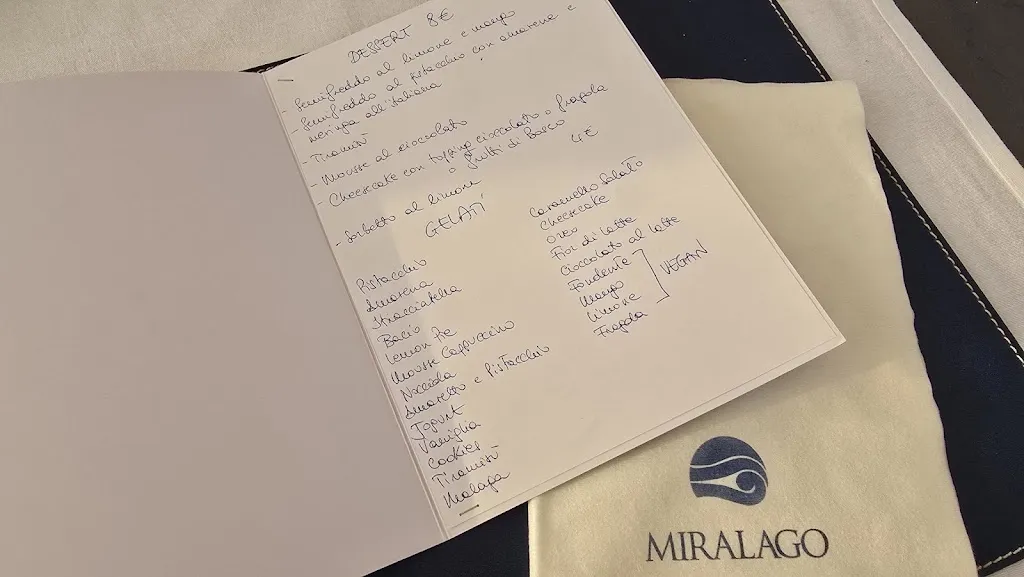 DESSERT 8€
- Semifreddo al limone e mango
- Semifreddo al pistacchio con amarena e
meringa all'italiana
- Tiramisù
- Mousse al cioccolato
- Cheesecake con topping cioccolato o fragola
o frutti di bosco
- Sorbetto al limone 4€
GELATI
Pistacchio
Amarena
Stracciatella
Bacio
Lemon Pie
Mousse Cappuccino
Nocciola
Amaretto e Pistacchio
Yogurt
Vaniglia
Cookies
Tiramisù
Malaga
Caramello Salato
Cheesecake
Oreo
Fior di latte
Cioccolato al latte
Fondente
Mango
Limone
Fragola
VEGAN
MIRALAGO